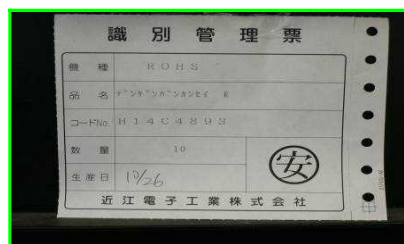 識別管理票
機種 ROHS
品名 デンゲンバンカンセイ R
コードNo. H14C4893
数量 10
安
生産日 10/26
近江電子工業株式会社